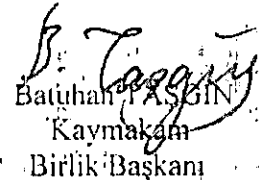 B. Taşgın
Batuhan TAŞGIN
Kaymakam
Birlik Başkanı